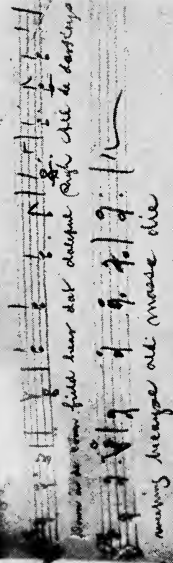 Down in de corn field hear dat doleful sigh all de darkeys
weeping because ole Massa die